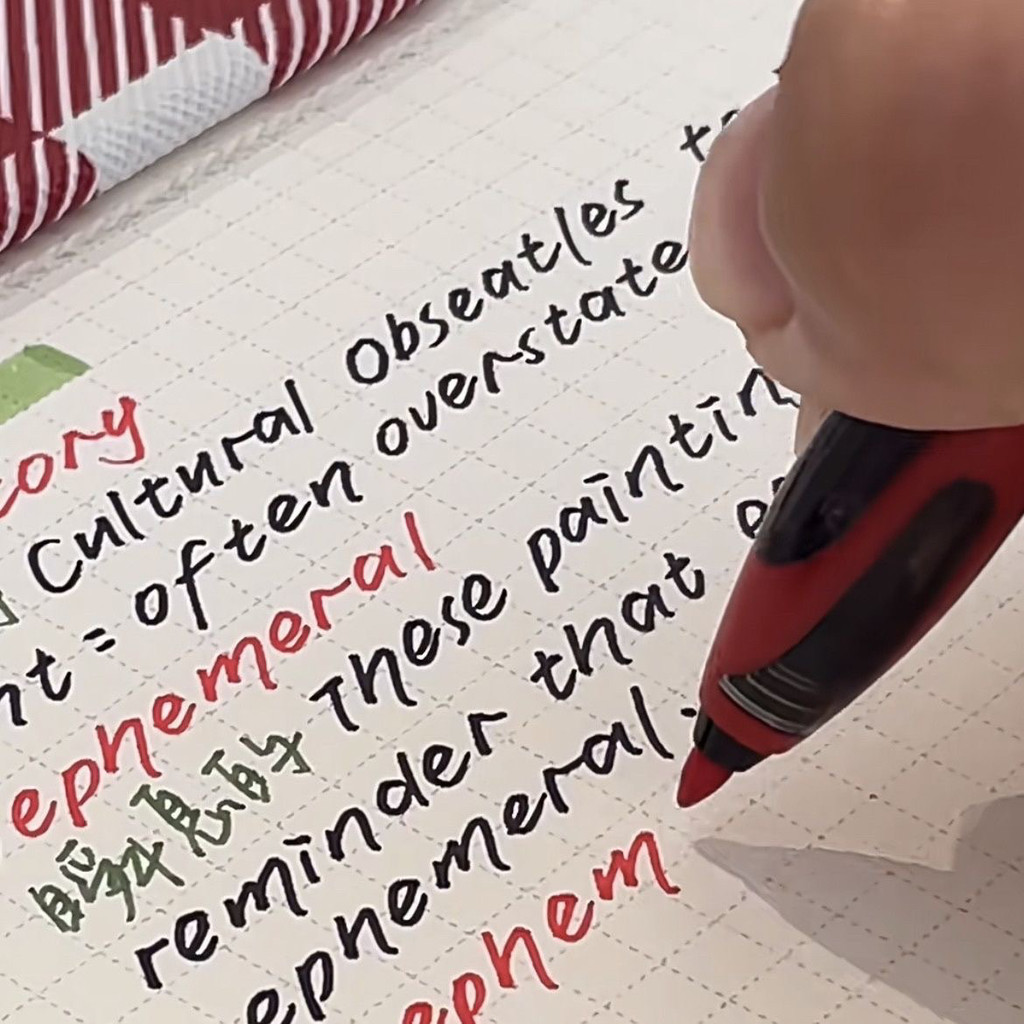 ory
Cultural Obseatles to
nt = often overstate
ephemeral
瞬息的 These paintin
reminder that
ephemeral.
ephem